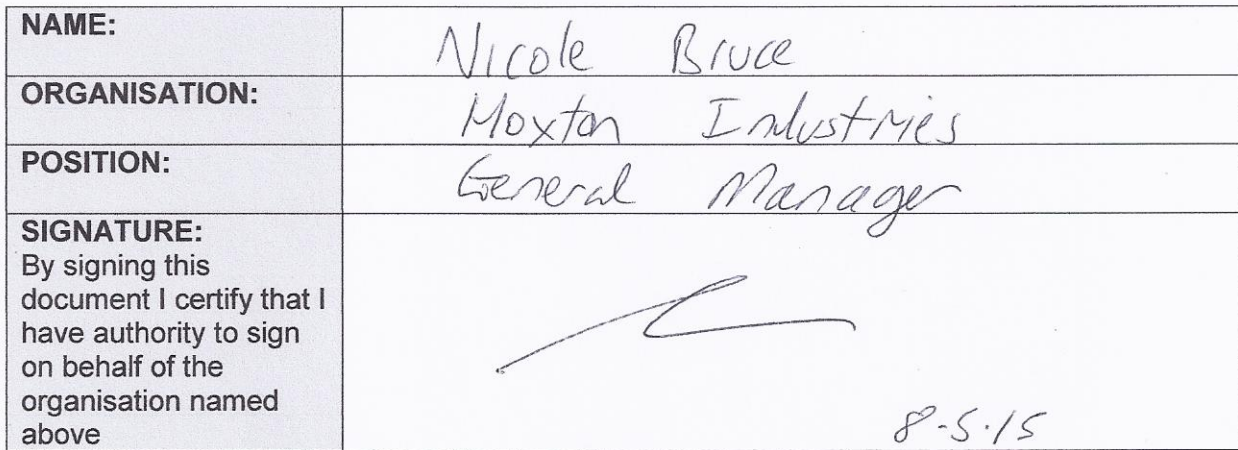 NAME: Nicole Bruce
ORGANISATION: Moxton Industries
POSITION: General Manager
SIGNATURE:
By signing this
document I certify that I
have authority to sign
on behalf of the
organisation named
above
8-5-15